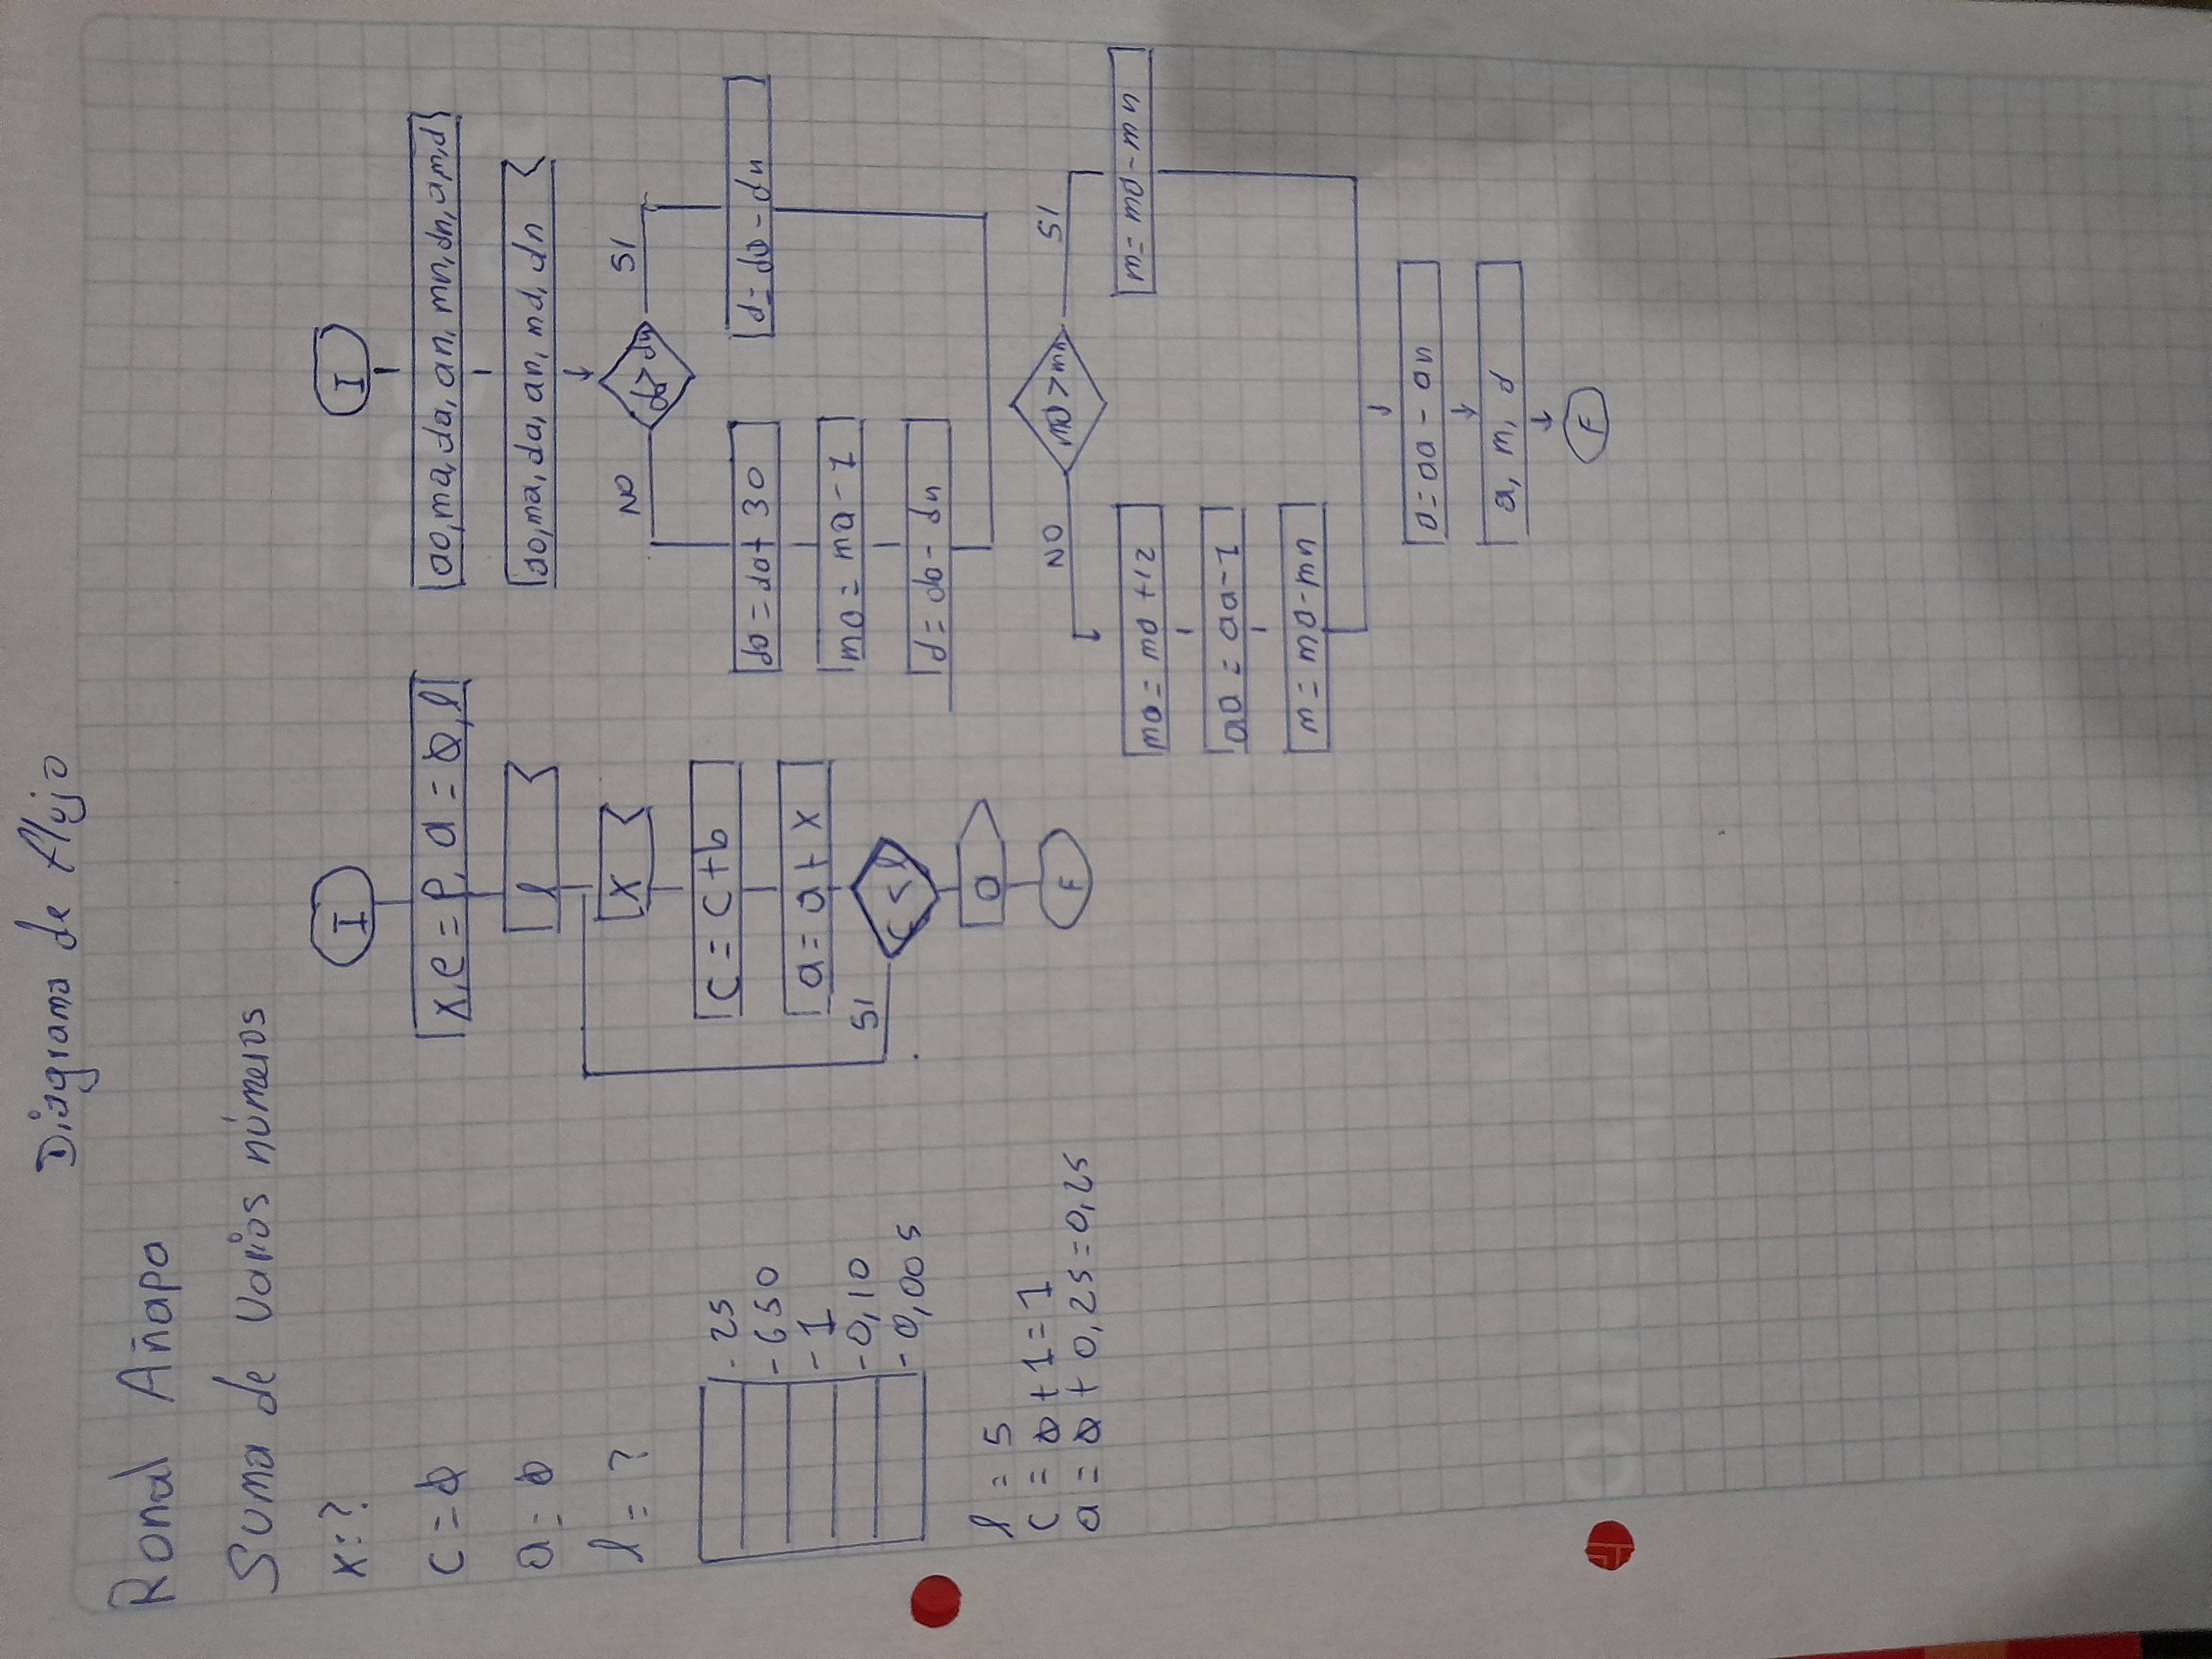 Diagrama de flujo
Ronal Añapa
Suma de varios números
x:?
c = 0
a = 0
l = ?
- 25
- 650
- 1
- 0,10
- 0,005
l = 5
c = 0 + 1 = 1
a = 0 + 0,25 = 0,25
I
l
x
c = c + b
a = a + x
SI
c < l
a
F
I
ao, ma, da, an, mn, dn, a, m, d
ao, ma, da, an, md, dn
NO
da > dn
SI
da = da + 30
d = da - dn
ma = ma - 1
d = da - dn
NO
ma > mn
SI
ma = ma + 12
m = ma - mn
aa = aa - 1
m = ma - mn
a = aa - an
a, m, d
F